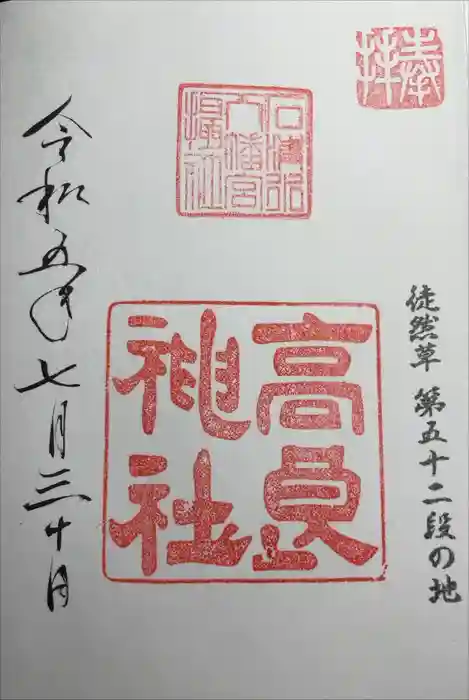 奉拝
徒然草 第五十二段の地
石清水
八幡宮
攝社
高良
神社
令和五年七月三十日